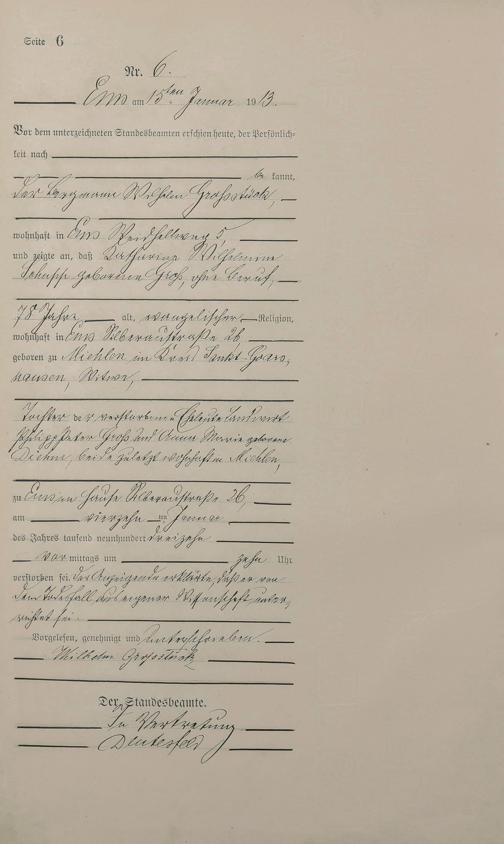 Seite 6
Nr. 6.
Ems am 15ten Januar 1913.
Vor dem unterzeichneten Standesbeamten erschien heute, der Persönlich-
keit nach
be kannt,
der Bergmann Wilhelm Grossstück,
wohnhaft in Ems 5,
und zeigte an, daß Katharina Wilhelmine
geborene Groß, ohne Beruf,
78 Jahre alt, evangelischer Religion,
wohnhaft in Ems Silberaustraße 26,
geboren zu Miehlen im Kreis Sankt Goars-
hausen, Witwe,
Tochter der verstorbenen Eheleute Landwirt
Philipp Peter Groß und Anna Marie geborene
beide zuletzt wohnhaft in Miehlen,
zu Ems im Hause Silberaustraße 26,
am vierzehn ten Januar
des Jahres tausend neunhundert dreizehn
vor mittags um zehn Uhr
verstorben sei. Der Anzeigende erklärte, daß er von
dem Todesfall aus eigener Wissenschaft unter-
richtet sei.
Vorgelesen, genehmigt und unterschrieben.
Wilhelm Grossstück
Der Standesbeamte.
In Vertretung